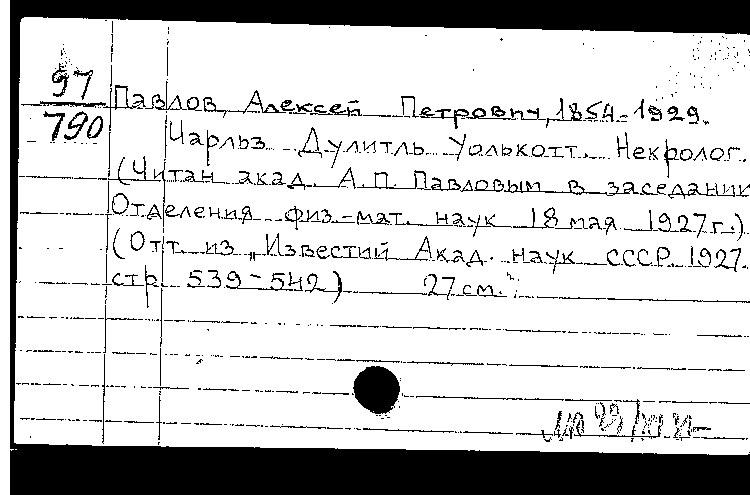 97
790
Павлов, Алексей Петрович, 1854-1929.
Чарльз Дулитль Уолькотт. Некролог.
(Читан акад. А.П. Павловым в заседании
Отделения физ.-мат. наук 18 мая 1927г.)
(Отт. из „Известий Акад. наук СССР. 1927.
стр. 539-542) 27 см.